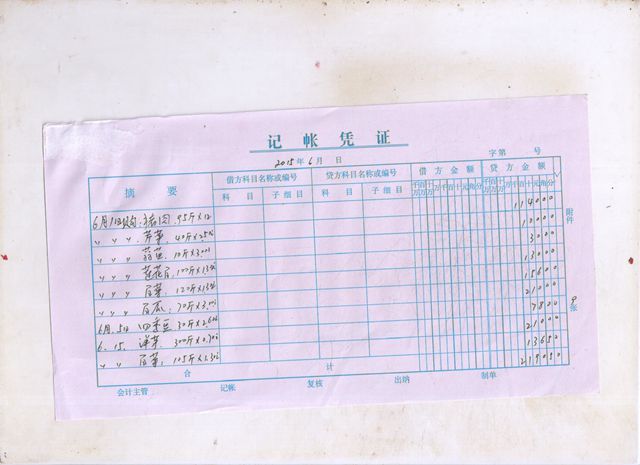 记帐凭证
2015年6月 日 字第 号
摘要 借方科目名称或编号 贷方科目名称或编号 借方金额 贷方金额
科目 子细目 科目 子细目 千百十万千百十元角分 千百十万千百十元角分
6月1日购 猪肉 95斤×12 114000
〃 〃 〃 芹菜 40斤×2.5 10000
〃 〃 〃 10斤×3.00 3000
〃 〃 〃 莲花白 100斤×1.3 13000
〃 〃 〃 120斤×1.3 15600
〃 〃 〃 70斤×3.00 21000
6月5日 四季豆 30斤×2.60 7800
6.15. 洋芋 300斤×0.70 21000
〃 〃 105斤×1.30 13650
合计 219050
附件 张
会计主管 记帐 复核 出纳 制单